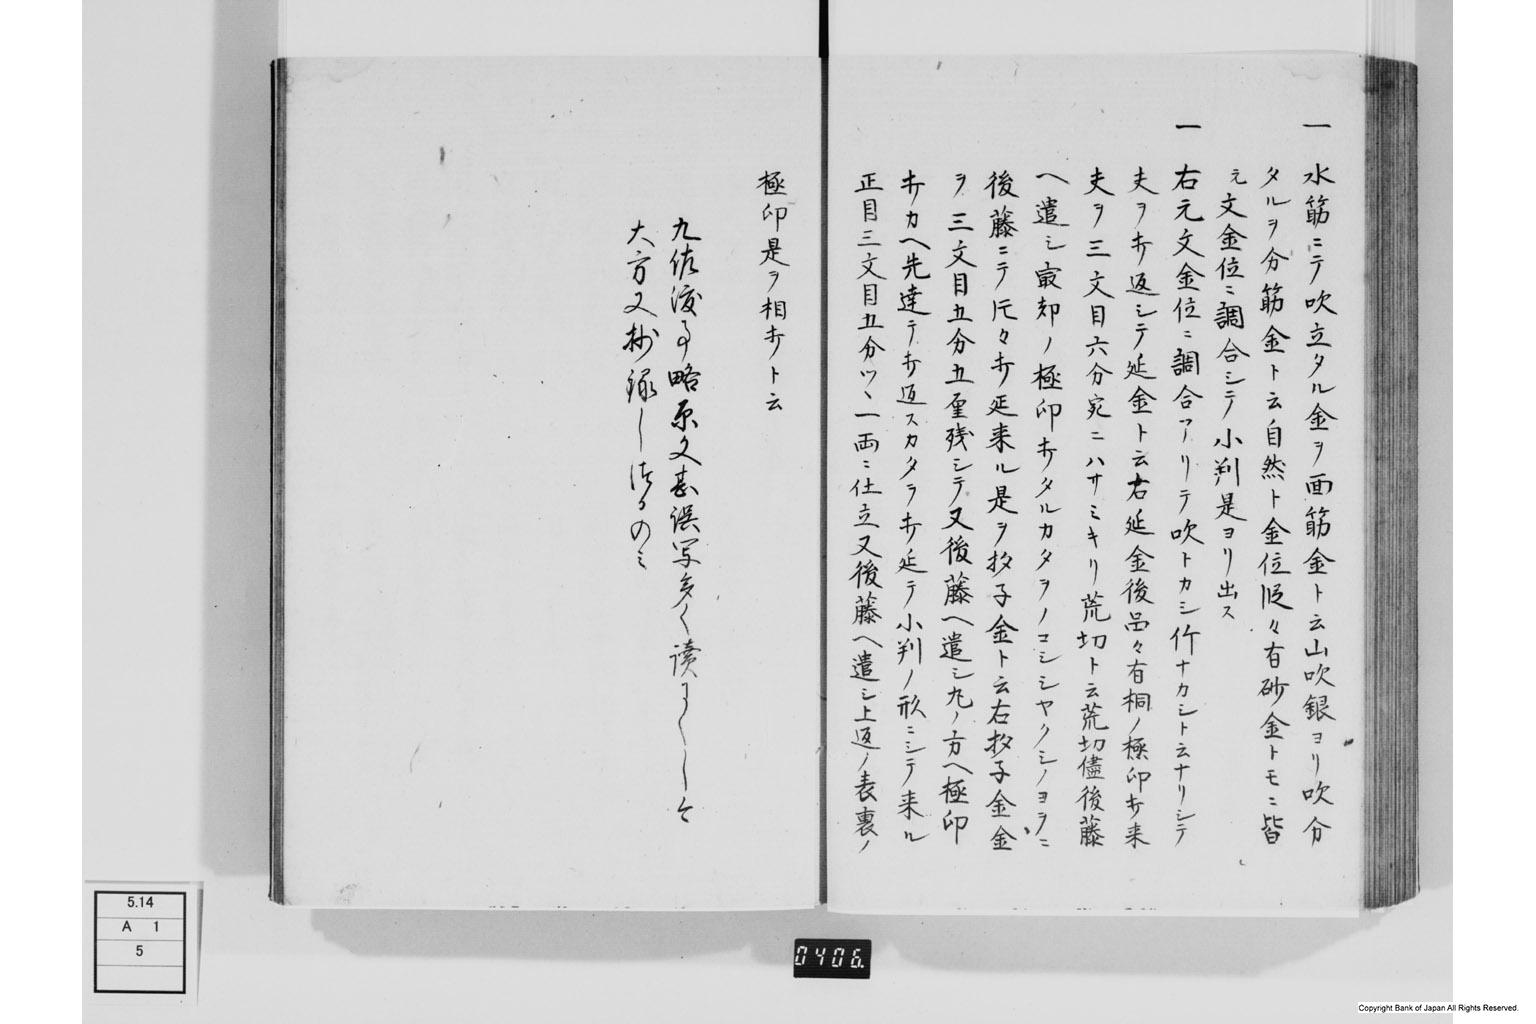 一 水筋ニテ吹立タル金ヲ面筋金ト云山吹銀ヨリ吹分
タルヲ分筋金ト云自然ト金位段々有砂金トモニ皆
元文金位ニ調合シテ小判是ヨリ出ス
一 右元文金位ニ調合アリテ吹トカシ竹ナカシト云ナリシテ
夫ヲ打返シテ延金ト云右延金後品々有桐ノ極印打来
夫ヲ三文目六分宛ニハサミキリ荒切ト云荒切儘後藤
ヘ遣シ最却ノ極印打タルカタヲノコシシヤクシノヨヲニ
後藤ニテ片々打延来ル是ヲ杓子金ト云右杓子金金
ヲ三文目五分五厘残シテ又後藤ヘ遣シ丸ノ方ヘ極印
打カヘ先達テ打返スカタヲ打延テ小判ノ形ニシテ来ル
正目三文目五分ツヽ一両ニ仕立又後藤ヘ遣シ上返ノ表裏ノ
極印是ヲ相打ト云
九佐渡事略原文甚誤写多く読
大方又抄録し のミ
5.14
A 1
5
0406.
Copyright Bank of Japan All Rights Reserved.